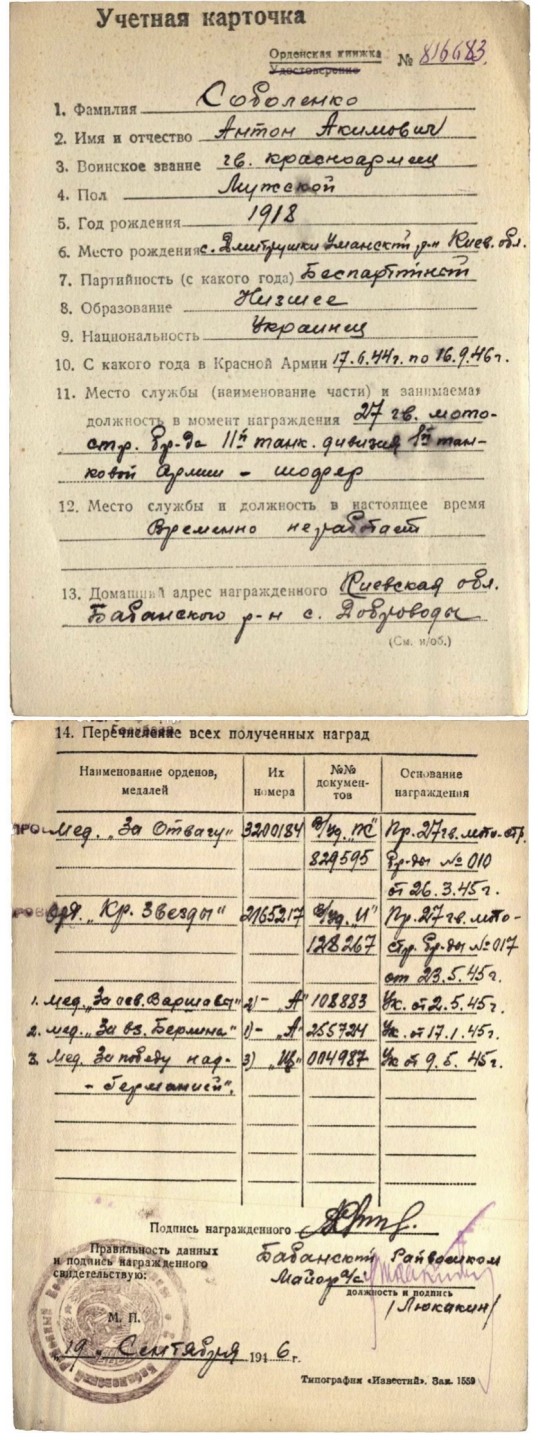 Учетная карточка
Орденская книжка
Удостоверение
№ 816683
1. Фамилия Соболенко
2. Имя и отчество Антон Акимович
3. Воинское звание гв. красноармеец
4. Пол Мужской
5. Год рождения 1918
6. Место рождения с. Дмитрушки Уманский р-н Киев. обл.
7. Партийность (с какого года) Беспартйный
8. Образование Низшее
9. Национальность Украинец
10. С какого года в Красной Армии 17.6.44г. по 16.9.46г.
11. Место службы (наименование части) и занимаемая
должность в момент награждения 27 гв. мото-
стр. бр-да 11й танк. дивизия 1й тан-
ковой Армии - шофер
12. Место службы и должность в настоящее время
Временно неработает
13. Домашний адрес награжденного Киевская обл.
Бабанского р-н с. Доброводы
(См. н/об.)
14. Перечисление всех полученных наград
Наименование орденов, медалей | Их номера | №№ документов | Основание награждения
Мед. „За Отвагу" 3200184 в/уд. „Ж" Пр. 27 гв. мото-стр.
829595 бр-ды № 010
от 26.3.45г.
орд. „Кр. Звезды" 2165217 в/уд. „И" Пр. 27 гв. мото-
128267 стр. бр-ды № 017
от 23.5.45г.
1. мед. „За осв. Варшавы" 2) - „А" 108883 Ук. от 2.5.45г.
2. мед. „За вз. Берлина" 1) - „А" 255724 Ук. от 17.1.45г.
3. Мед. За победу над 3) 004987 Ук от 9.5.45г.
- Германией".
Подпись награжденного
Правильность данных
и подпись награжденного
свидетельствую:
Бабанский Райвоенком
Майор а/с
должность и подпись
/Люкакин/
М. П.
19 „ Сентября 1946 г.
Типография «Известий». Зак. 1559